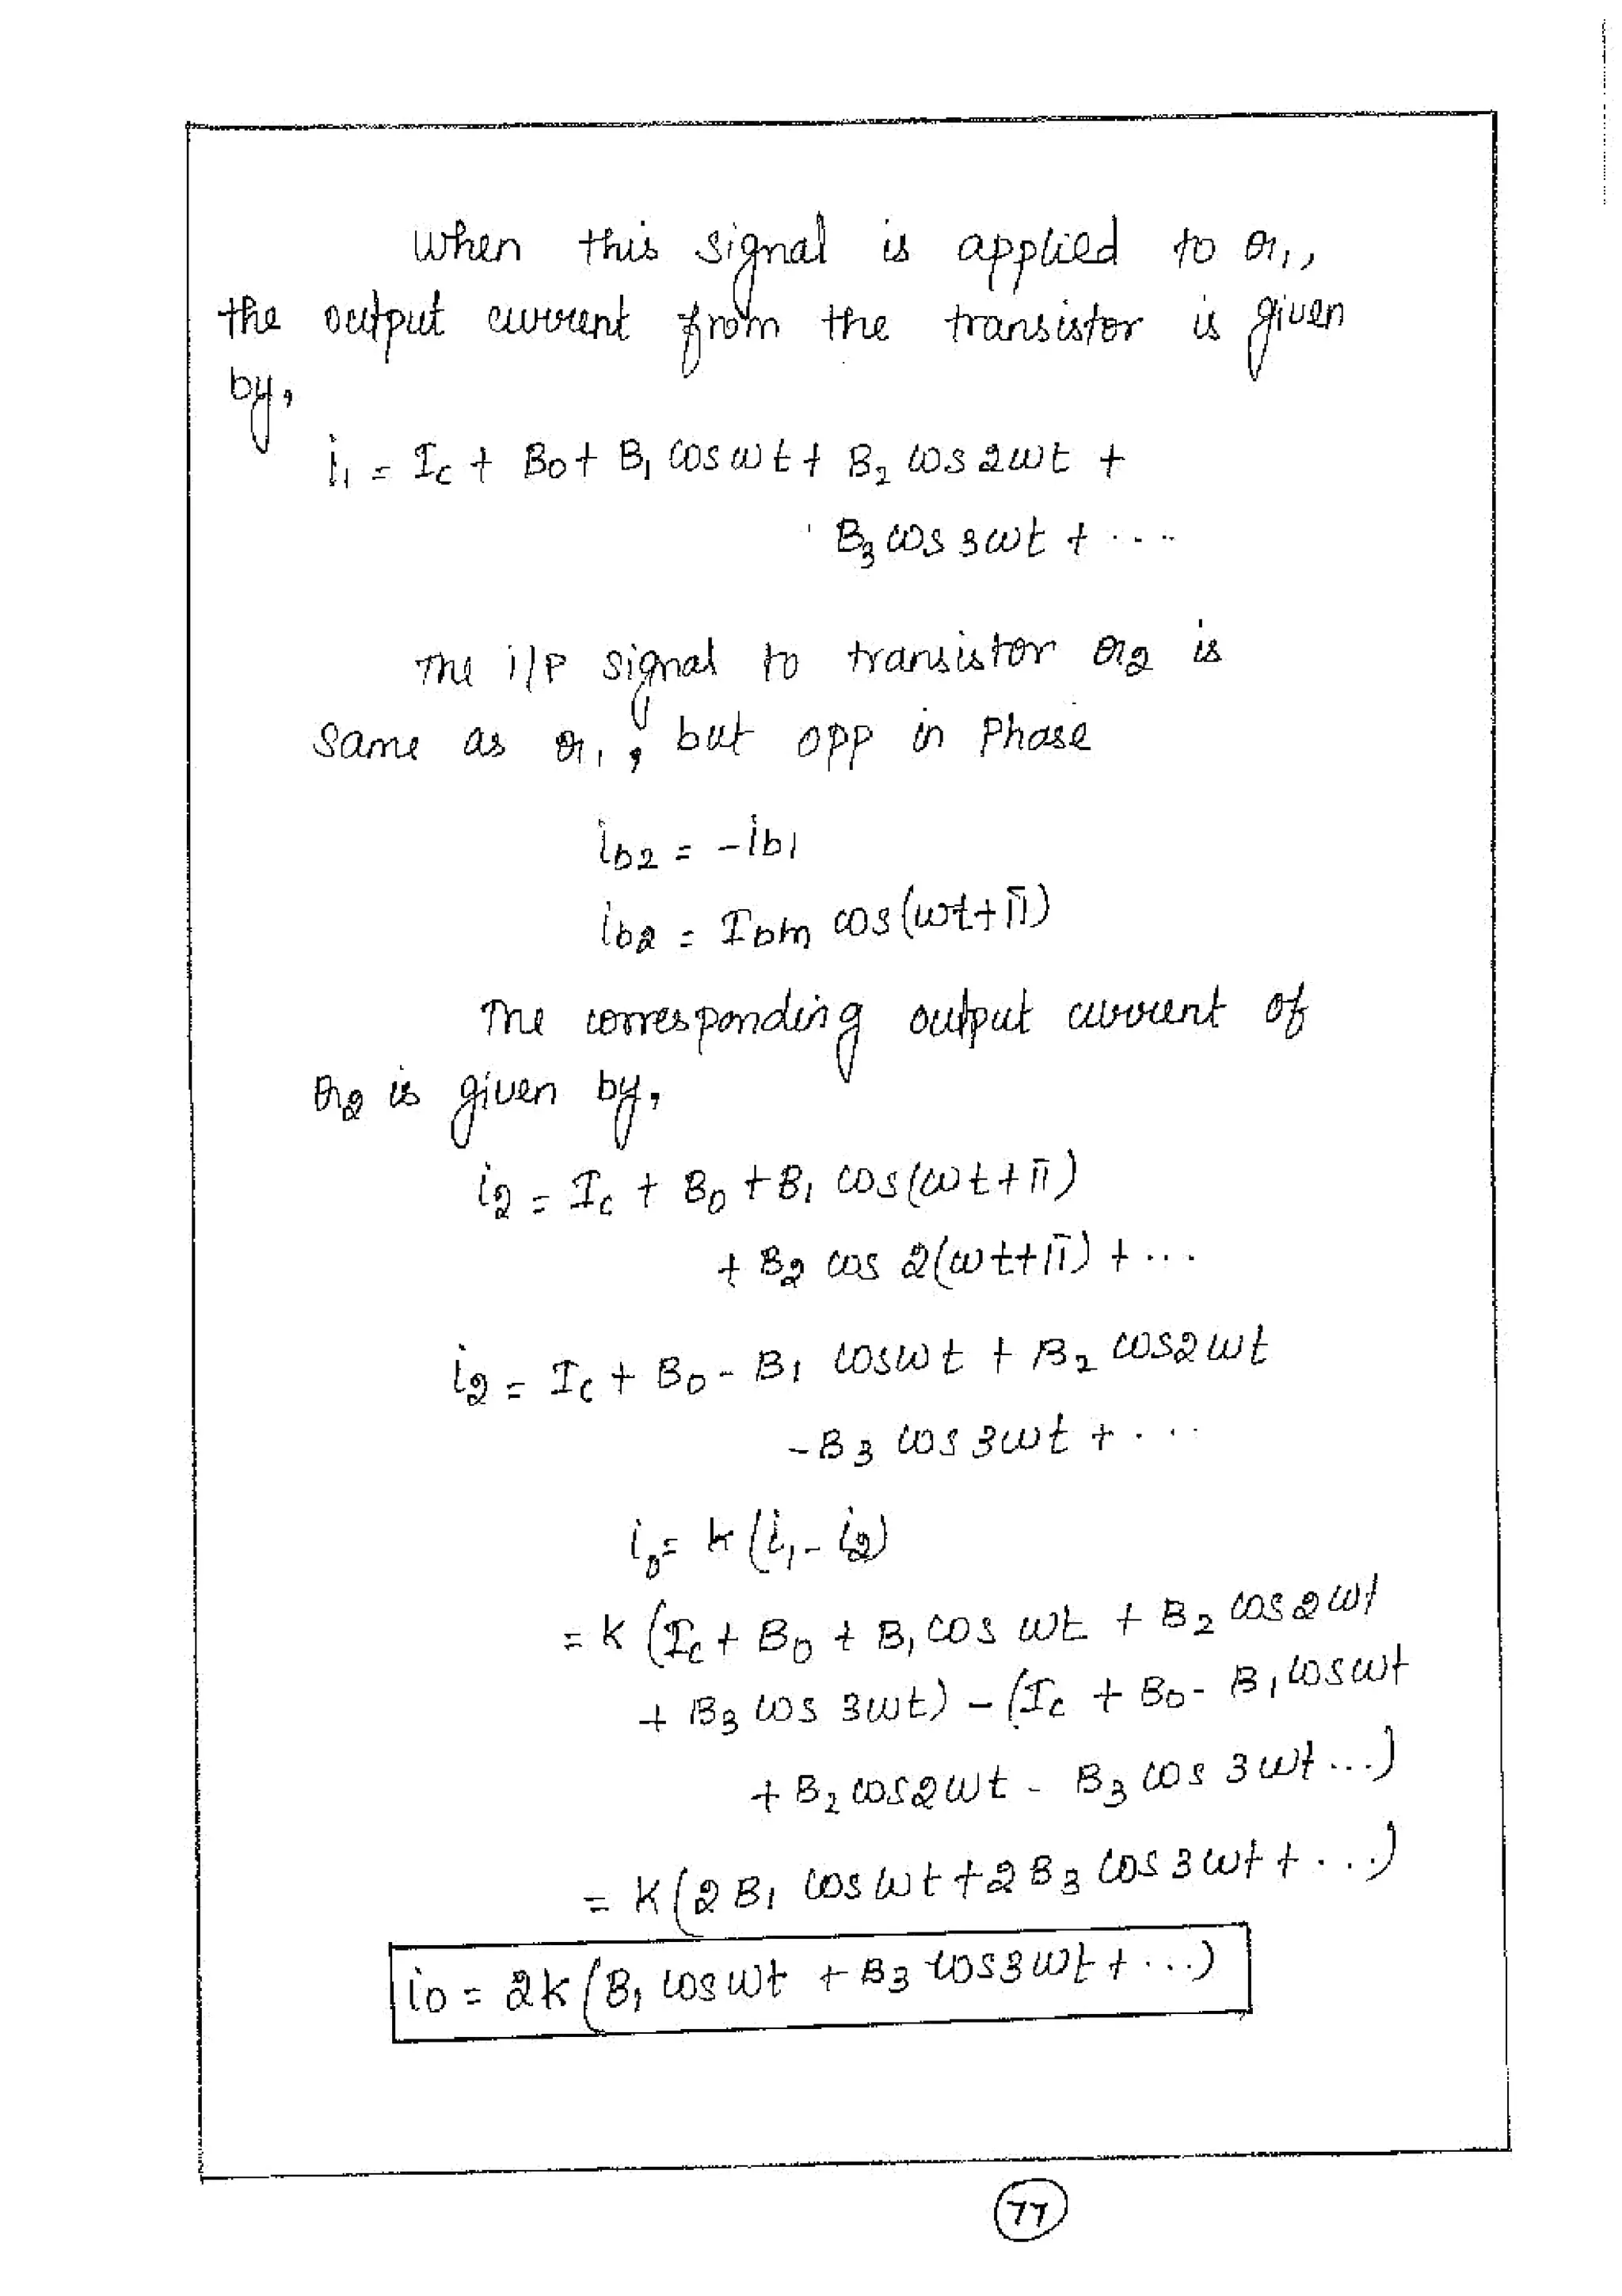 when this signal is applied to Q1,
the output current from the transistor is given
by,
i1 = Ic + B0 + B1 cos ωt + B2 cos 2ωt +
B3 cos 3ωt + ...
The i/p signal to transistor Q2 is
same as Q1, but opp in Phase
ib2 = -ib1
ib2 = Ibm cos(ωt+π)
The corresponding output current of
Q2 is given by,
i2 = Ic + B0 + B1 cos(ωt+π)
+ B2 cos 2(ωt+π) + ...
i2 = Ic + B0 - B1 cosωt + B2 cos2ωt
-B3 cos 3ωt + ...
i0 = k(i1 - i2)
= K (Ic + B0 + B1 cos ωt + B2 cos 2ωt
+ B3 cos 3ωt) - (Ic + B0 - B1 cosωt
+ B2 cos2ωt - B3 cos 3ωt ...)
= K(2B1 cosωt + 2B3 cos 3ωt + ...)
i0 = 2k(B1 cosωt + B3 cos3ωt + ...)
77